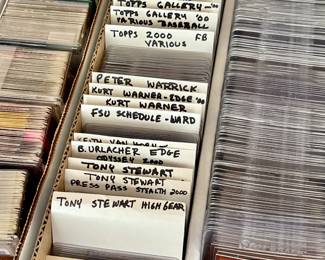 TOPPS GALLERY '00
TOPPS GALLERY '00
VARIOUS BASEBALL
TOPPS 2000 FB
VARIOUS
PETER WARRICK
KURT WARNER-EDGE '00
KURT WARNER
FSU SCHEDULE-WARD
KEITH VAN HORN
B. URLACHER EDGE
ODYSSEY 2000
TONY STEWART
TONY STEWART
PRESS PASS STEALTH 2000
TONY STEWART HIGH GEAR